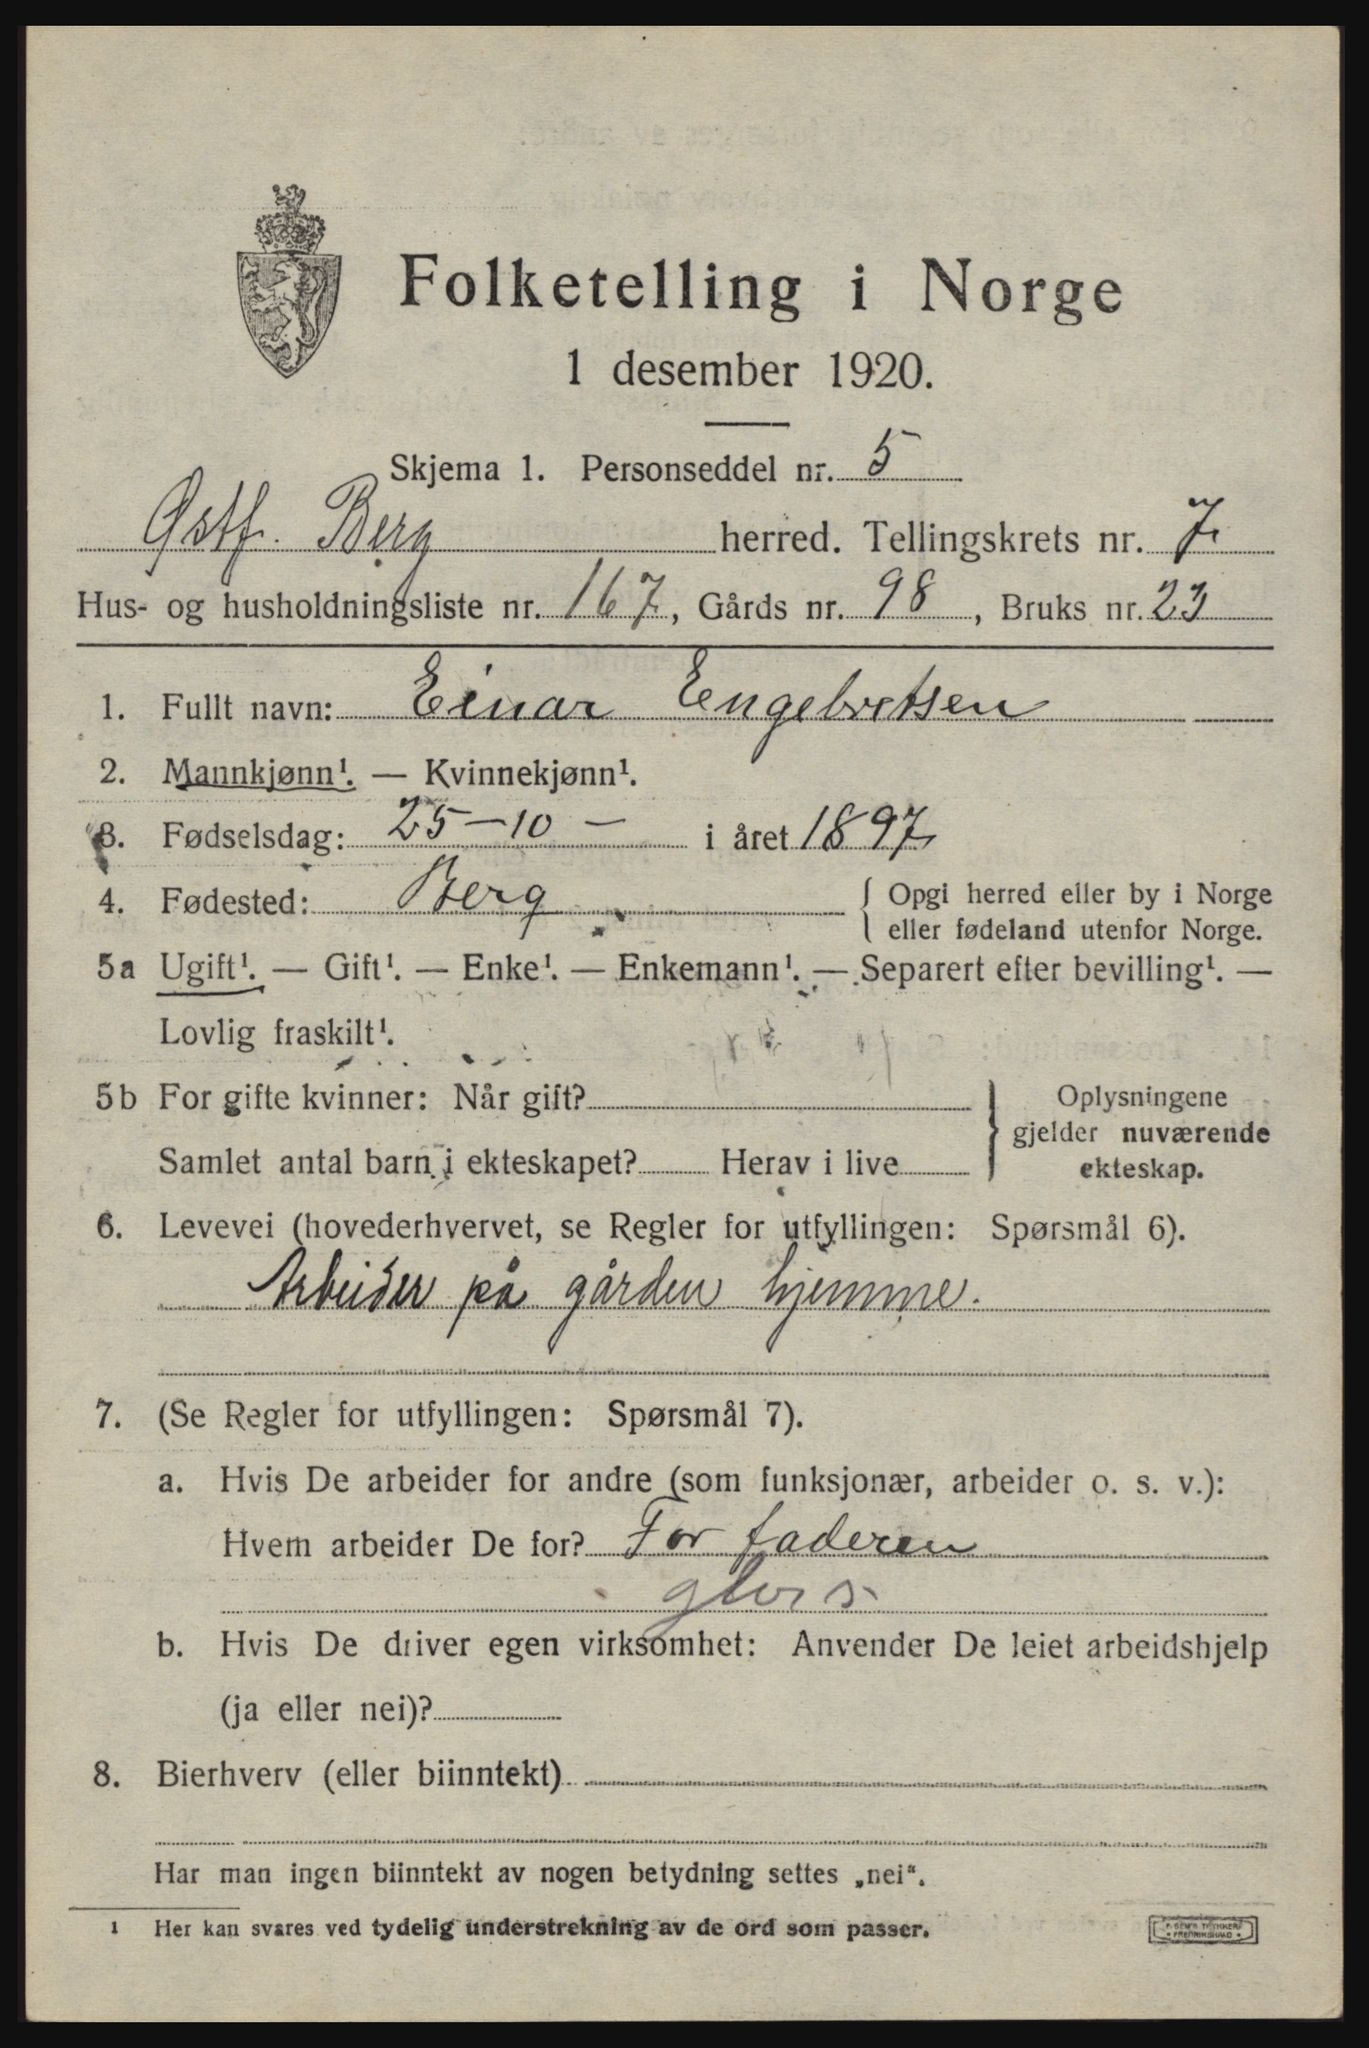 Folketelling i Norge
1 desember 1920.
Skjema 1. Personseddel nr. 5
Østf. Berg herred. Tellingskrets nr. 7
Hus- og husholdningsliste nr. 167, Gårds nr. 98, Bruks nr. 23
1. Fullt navn: Einar Engebretsen
2. Mannkjønn¹. — Kvinnekjønn¹.
3. Fødselsdag: 25-10- i året 1897
4. Fødested: Berg { Opgi herred eller by i Norge
eller fødeland utenfor Norge.
5a Ugift¹. — Gift¹. — Enke¹. — Enkemann¹. — Separert efter bevilling¹. —
Lovlig fraskilt¹.
5b For gifte kvinner: Når gift? } Oplysningene
gjelder nuværende
Samlet antal barn i ekteskapet? Herav i live ekteskap.
6. Levevei (hovederhvervet, se Regler for utfyllingen: Spørsmål 6).
Arbeider på gården hjemme.
7. (Se Regler for utfyllingen: Spørsmål 7).
a. Hvis De arbeider for andre (som funksjonær, arbeider o. s. v.):
Hvem arbeider De for? For faderen
b. Hvis De driver egen virksomhet: Anvender De leiet arbeidshjelp
(ja eller nei)?
8. Bierhverv (eller biinntekt)
Har man ingen biinntekt av nogen betydning settes „nei“.
¹ Her kan svares ved tydelig understrekning av de ord som passer.